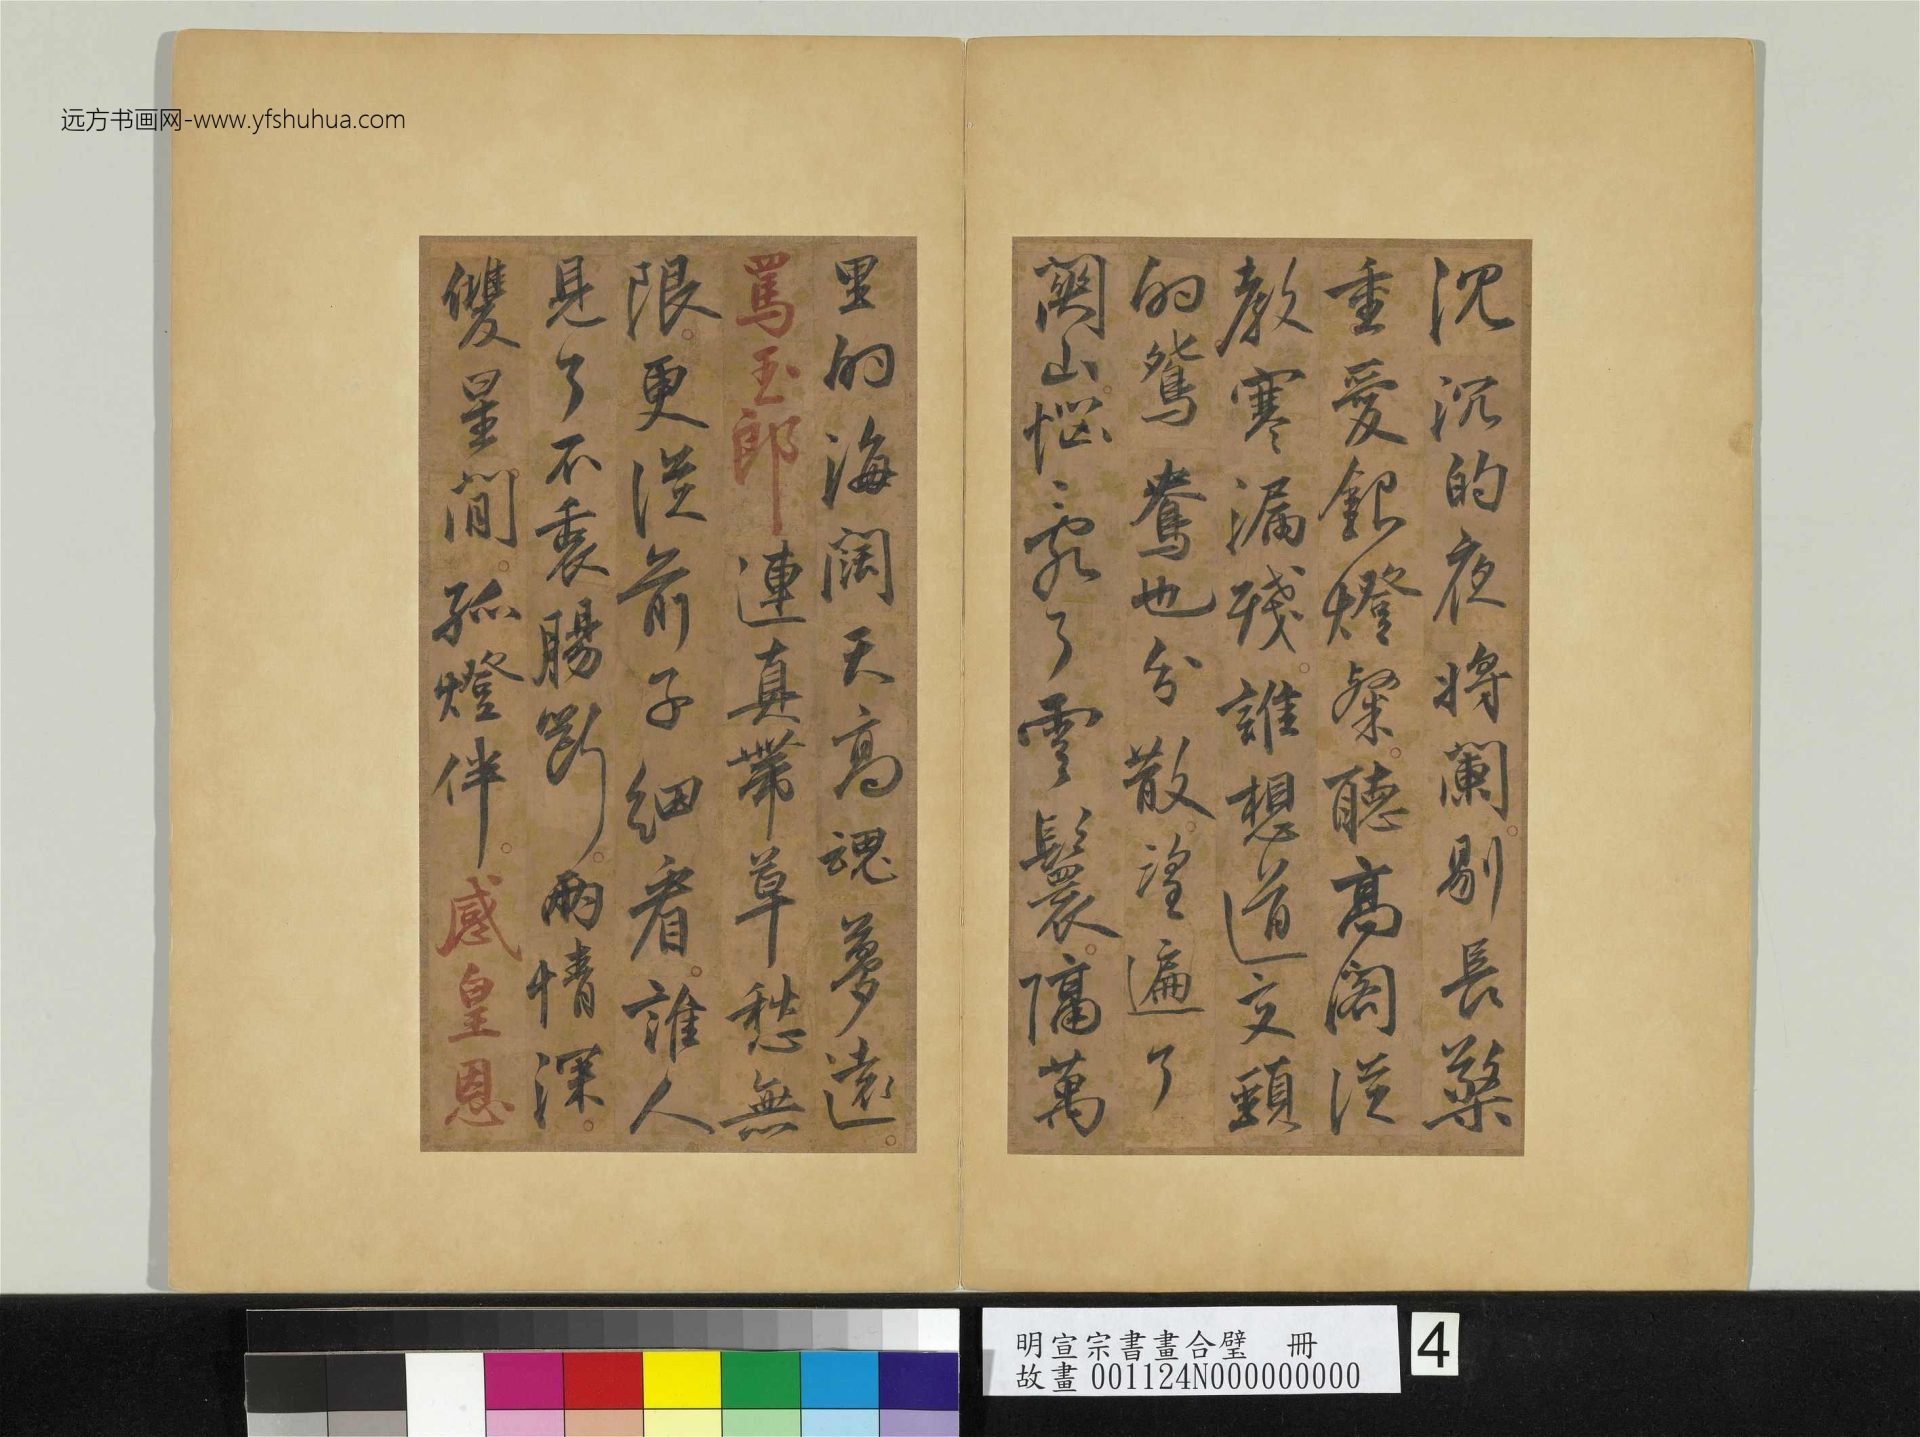 沉沉的夜將闌剔長檠
重愛銀燈粲聽高閣從
教寒漏殘誰想道交頸
的鴛鴦也分散望遍了
關山惱亂了雲鬟隔萬
里的海闊天高魂夢遠
罵玉郎連真帶草愁無
限更從前子細看誰人
見了不裏腸斷兩情深
雙星間孤燈伴感皇恩
远方书画网-www.yfshuhua.com
明宣宗書畫合璧 冊
故畫 001124N000000000
4